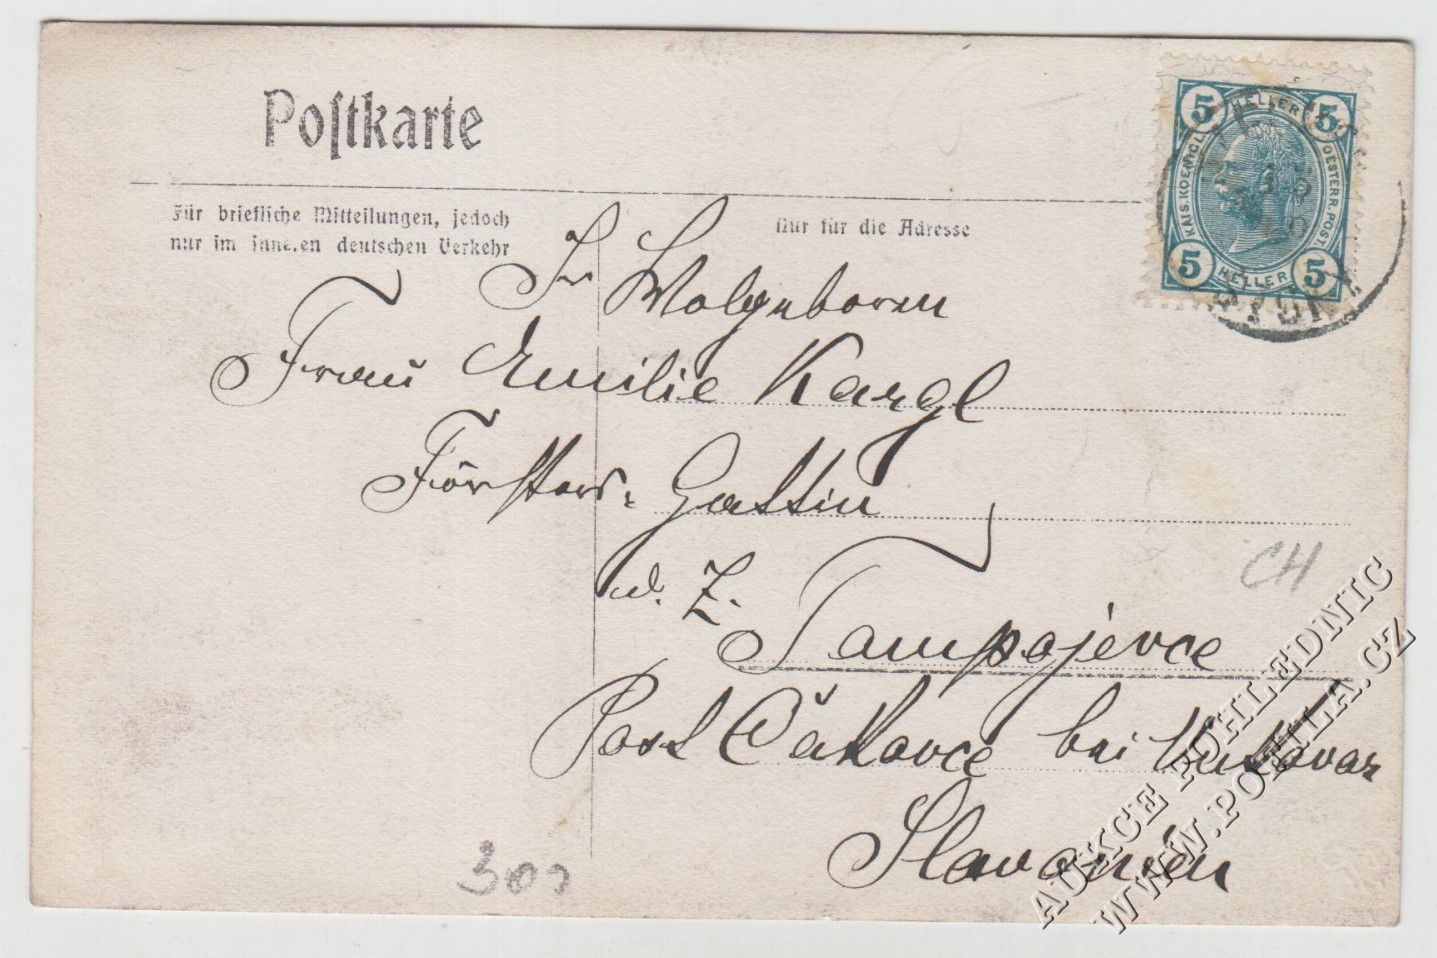 Postkarte
Für briefliche Mitteilungen, jedoch
nur im inneren deutschen Verkehr
Nur für die Adresse
5 HELLER 5
KAIS. KOENIGL. OESTERR. POST.
5 HELLER 5
Ir Wolgeboren
Frau Emilie Kargl
Försters-Gattin
d. Z.
Tompojevce
Post Čakovce bei Vukovar
Slavonien
CH
300
AUKCE POHLEDNIC
WWW.POHLA.CZ